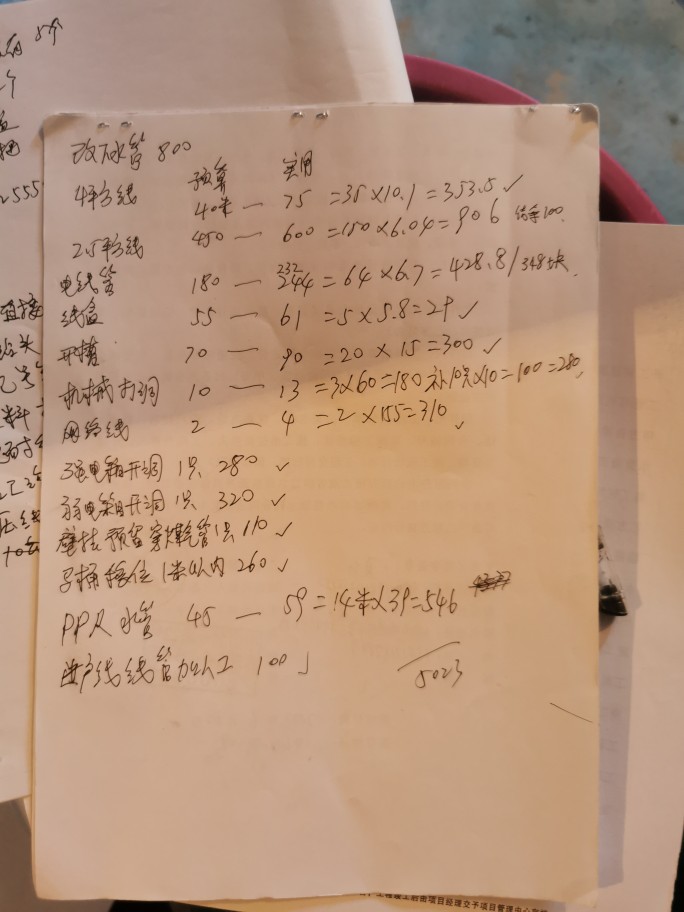 改水管 800
预算 实用
4平方线 40米 — 75 =35×10.1=353.5 ✓
2.5平方线 450 — 600 =150×6.04=906
电线管 180 — 232 244 =64×6.7=428.8/348块
线盒 55 — 61 =5×5.8=29 ✓
开槽 70 — 90 =20×15=300 ✓
机械打洞 10 — 13 =3×60=180 补10只×10=100=280
网络线 2 — 4 =2×155=310 ✓
强电箱开洞 1只 280 ✓
弱电箱开洞 1只 320 ✓
壁挂预留 管1只 110 ✓
移位1米以内 260 ✓
PPR水管 45 — 59=14米×39=546
进户线线管加人工 100 ✓
5023
5个
个
盒
2555
直接
料
交子项目管理中心